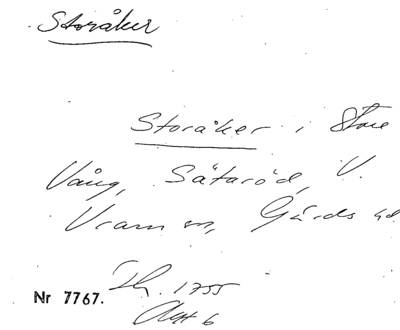 Storåker
Storåker i Store
Vång, Sätaröd, V.
Vram sn, Gärds hd
Nr 7767. Th. 1755
Akt 6